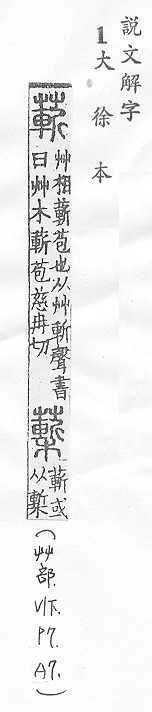 說文解字
1大徐本
蔪
艸相蔪苞也从艸斬聲書
曰艸木蔪苞慈冉切
蔪或
从槧
(艸部. V1下. P7. A7.)